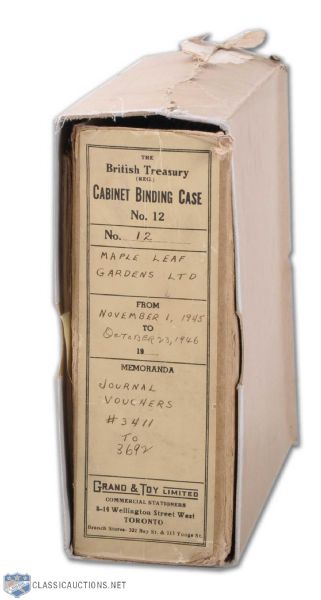 THE
British Treasury
(REG.)
CABINET BINDING CASE
No. 12
No. 12
MAPLE LEAF
GARDENS LTD
FROM
NOVEMBER 1, 1945
TO
OCTOBER 23, 1946
19
MEMORANDA
JOURNAL
VOUCHERS
#3411
TO
3692
GRAND & TOY LIMITED
COMMERCIAL STATIONERS
8-14 Wellington Street West
TORONTO
Branch Stores: 327 Bay St. & 113 Yonge St.
CLASSICAUCTIONS.NET